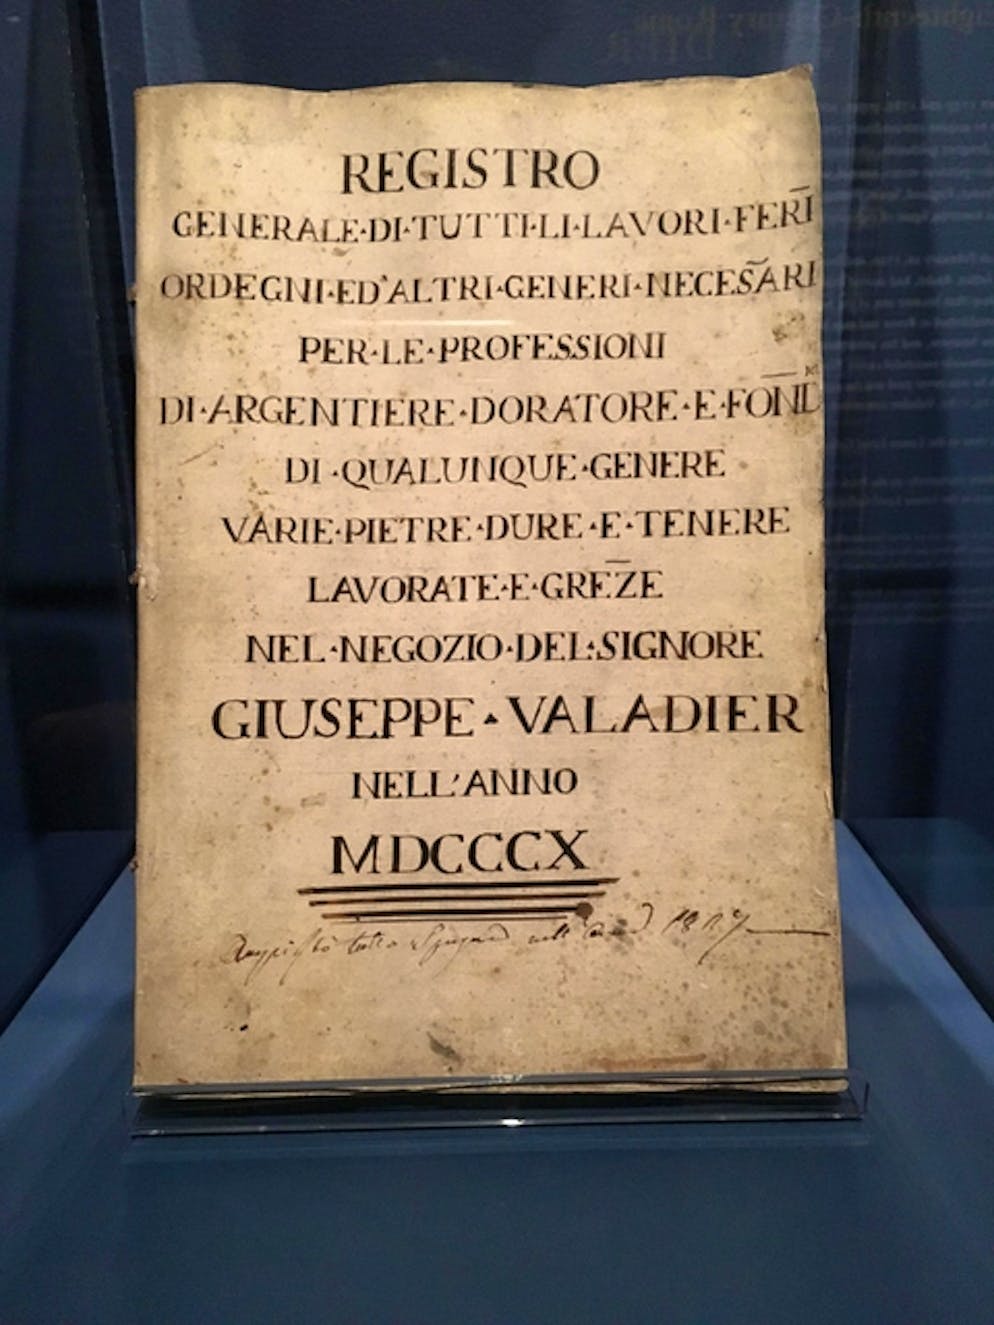 REGISTRO
GENERALE·DI·TUTTI·LI·LAVORI·FERĪ
ORDEGNI·ED'ALTRI·GENERI·NECES̃ARI
PER·LE·PROFESSIONI
DI·ARGENTIERE·DORATORE·E·FOÑD
DI·QUALUNQUE·GENERE
VARIE·PIETRE·DURE·E·TENERE
LAVORATE·E·GREZ̄E
NEL·NEGOZIO·DEL·SIGNORE
GIUSEPPE·VALADIER
NELL'ANNO
MDCCCX